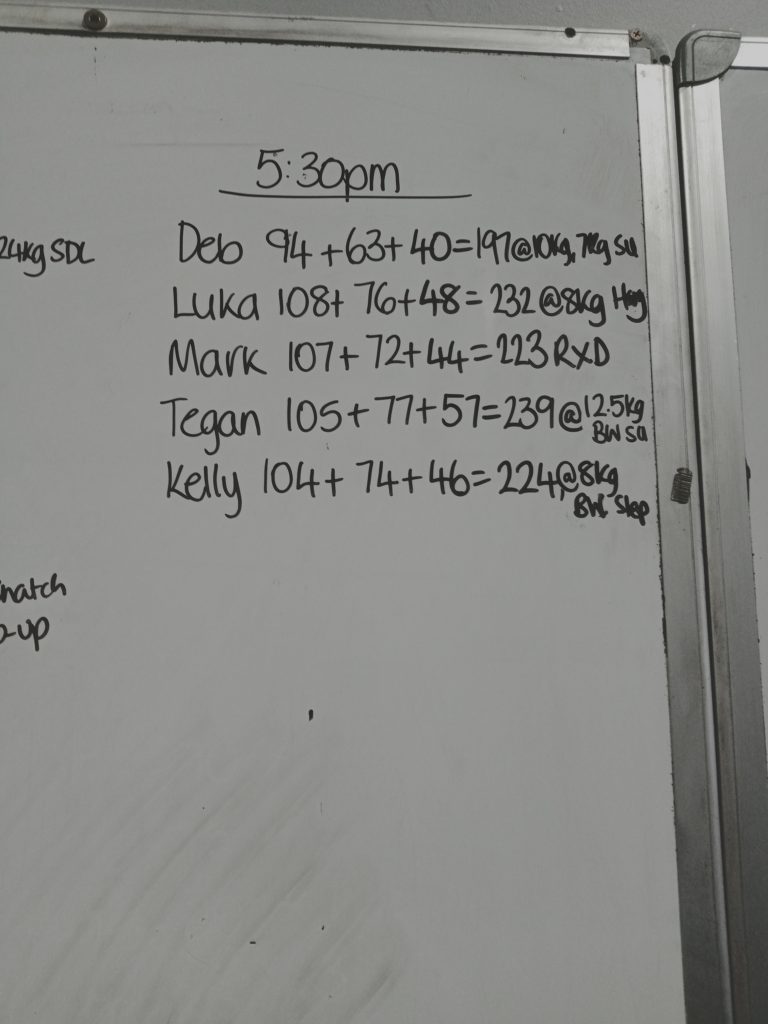 5:30pm
24kg SDL
Deb 94+63+40=197@10kg, 7kg SU
Luka 108+76+48=232@8kg
Mark 107+72+44=223 RXD
Tegan 105+77+57=239@12.5kg
BW SU
Kelly 104+74+46=224@8kg
BW Step
natch
-up